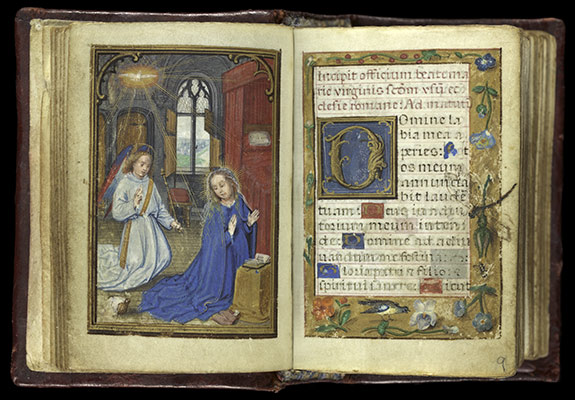 Incipit officium beate ma
rie virginis scdm usu ec
clesie romane: Ad matuti
Domine la
bia mea a
peries: Et
os meum
annuncia
bit laudem
tuam: Deus in adiu
torium meum inten
de: Domine ad adiu
uandum me festina:
Gloria patri et filio: et
spiritui sancto: Sicut
9